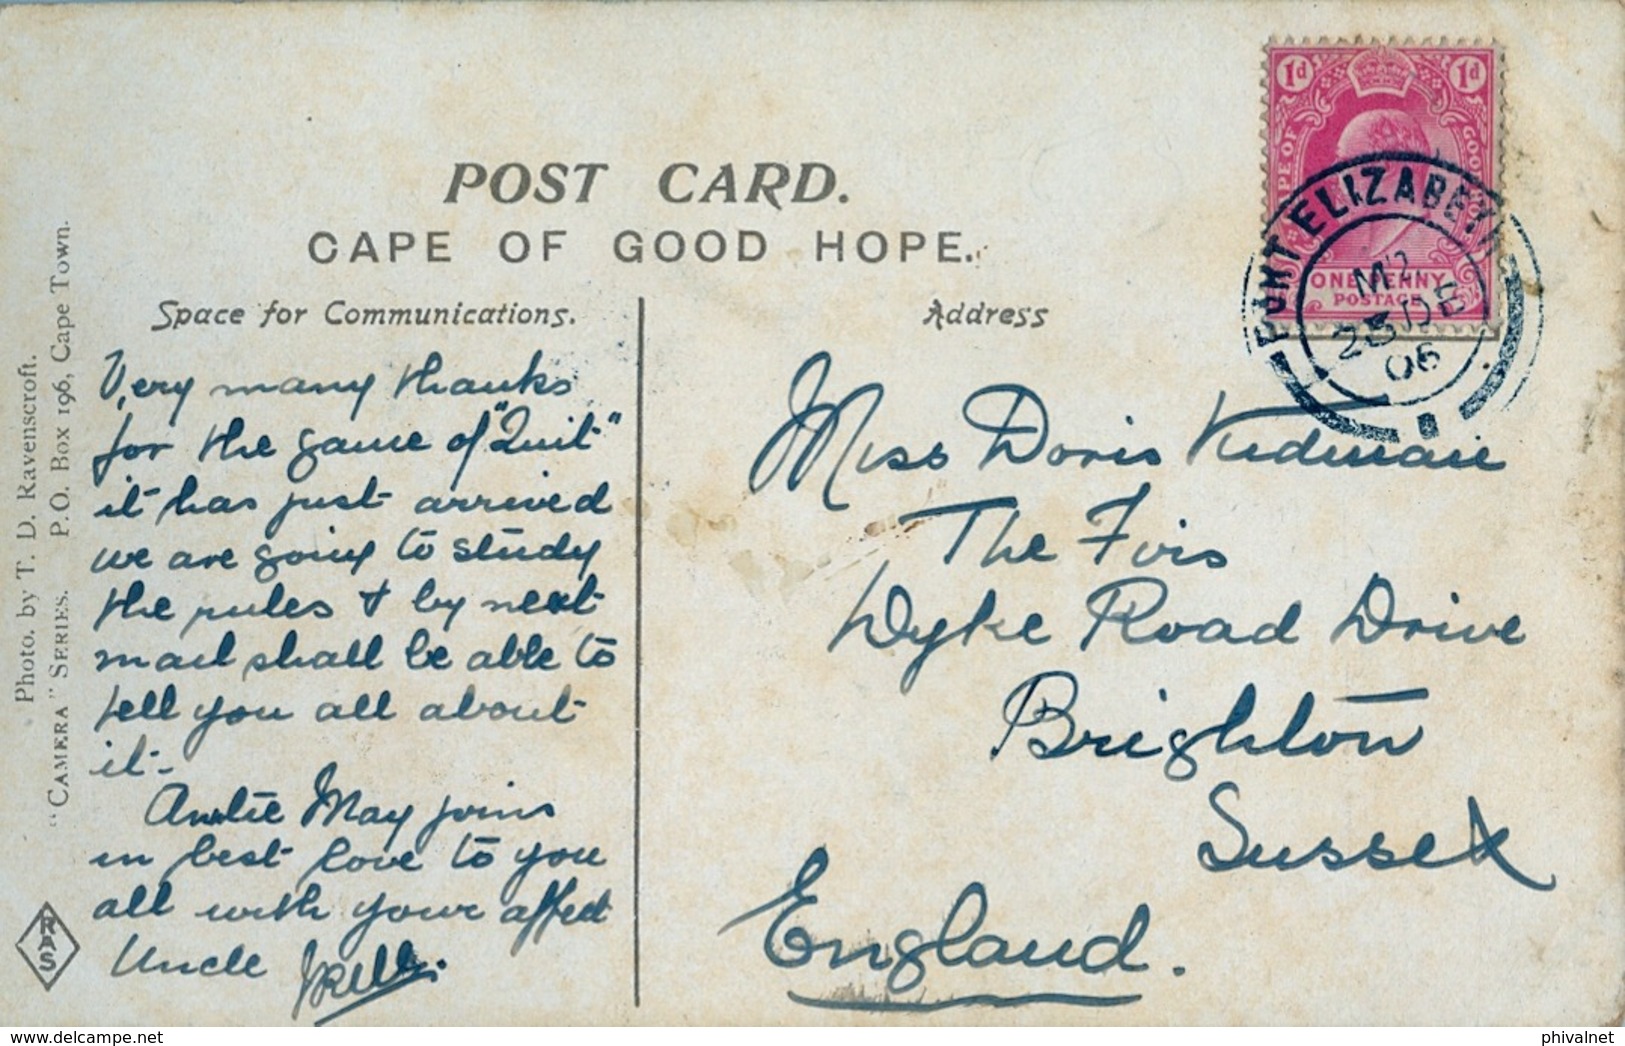 POST CARD.
CAPE OF GOOD HOPE.
Space for Communications.
Address
Very many thanks
for the game of "Quit"
it has just arrived
we are going to study
the rules & by next
mail shall be able to
tell you all about
it.
Auntie May joins
in best love to you
all with your affect
Uncle
Miss Doris Kidman
The Firs
Dyke Road Drive
Brighton
Sussex
England.
1d 1d
ONE PENNY
POSTAGE
PORT ELIZABETH
25 DE
06
Photo. by T. D. Ravenscroft.
"CAMERA" SERIES. P.O. Box 196, Cape Town.
RAS
phivalnet